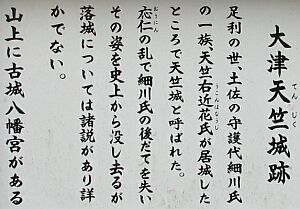 大津天竺城跡
てんじく
足利の世、土佐の守護代細川氏
の一族、天竺右近花氏が居城した
うこんはなうじ
ところで天竺城と呼ばれた。
応仁の乱で細川氏の後だてを失い
おうにん
その姿を史上から没し去るが
落城については諸説があり詳
かでない。
山上に古城八幡宮がある